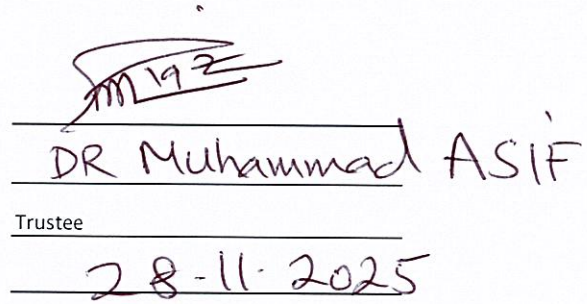 DR Muhammad ASIF
Trustee
28-11-2025